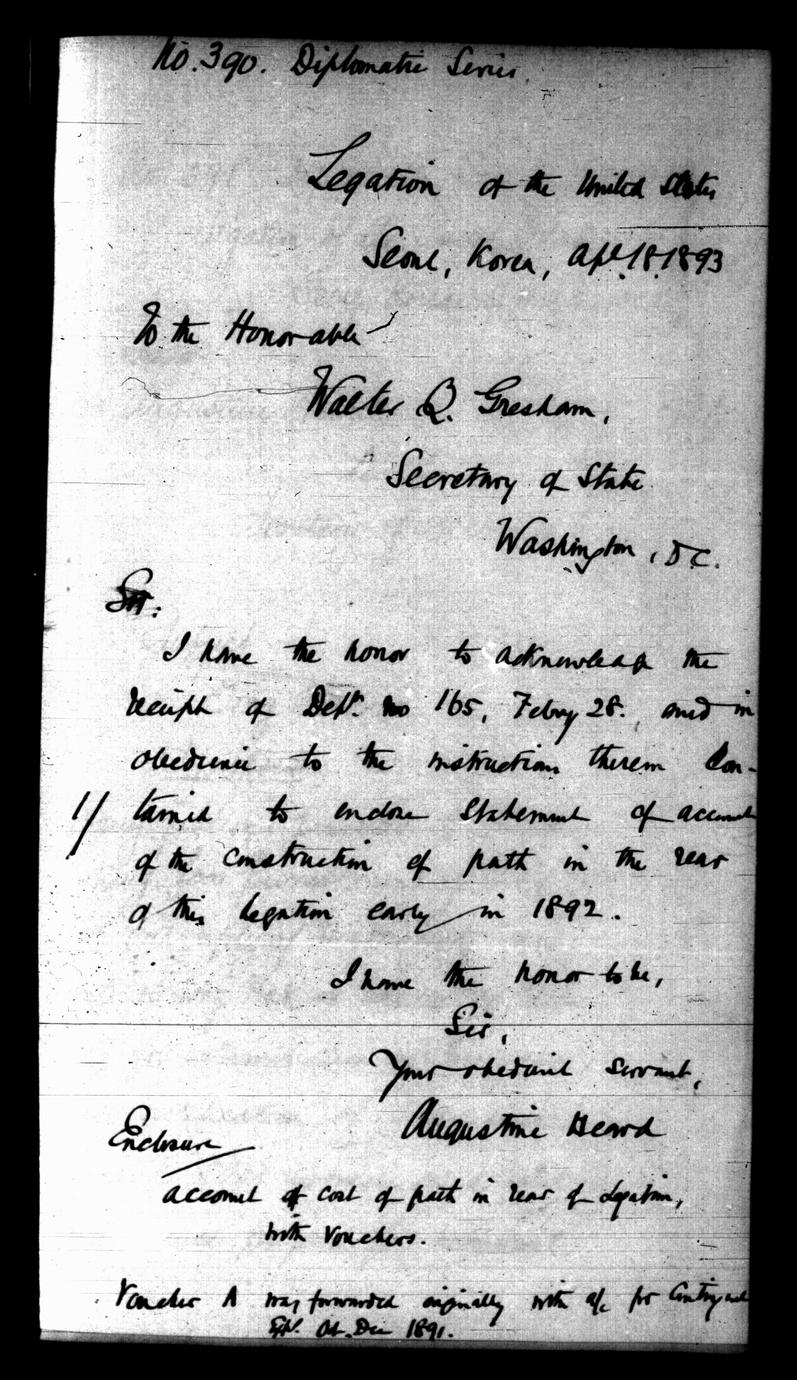 No. 390. Diplomatic Series.
Legation of the United States
Seoul, Korea, Apl. 18. 1893
To the Honorable
Walter Q. Gresham,
Secretary of State
Washington, D.C.
Sir:
I have the honor to acknowledge the
receipt of Dept. no 165, Febry 28., and in
obedience to the instructions therein con-
1/ tained to enclose statement of account
of the construction of path in the rear
of this legation early in 1892.
I have the honor to be,
Sir,
Your obedient servant,
Augustine Heard
Enclosure
account of cost of path in rear of Legation,
with vouchers.
Voucher A was forwarded originally with a/c for Contingent
Exp. Oct. Dec 1891.